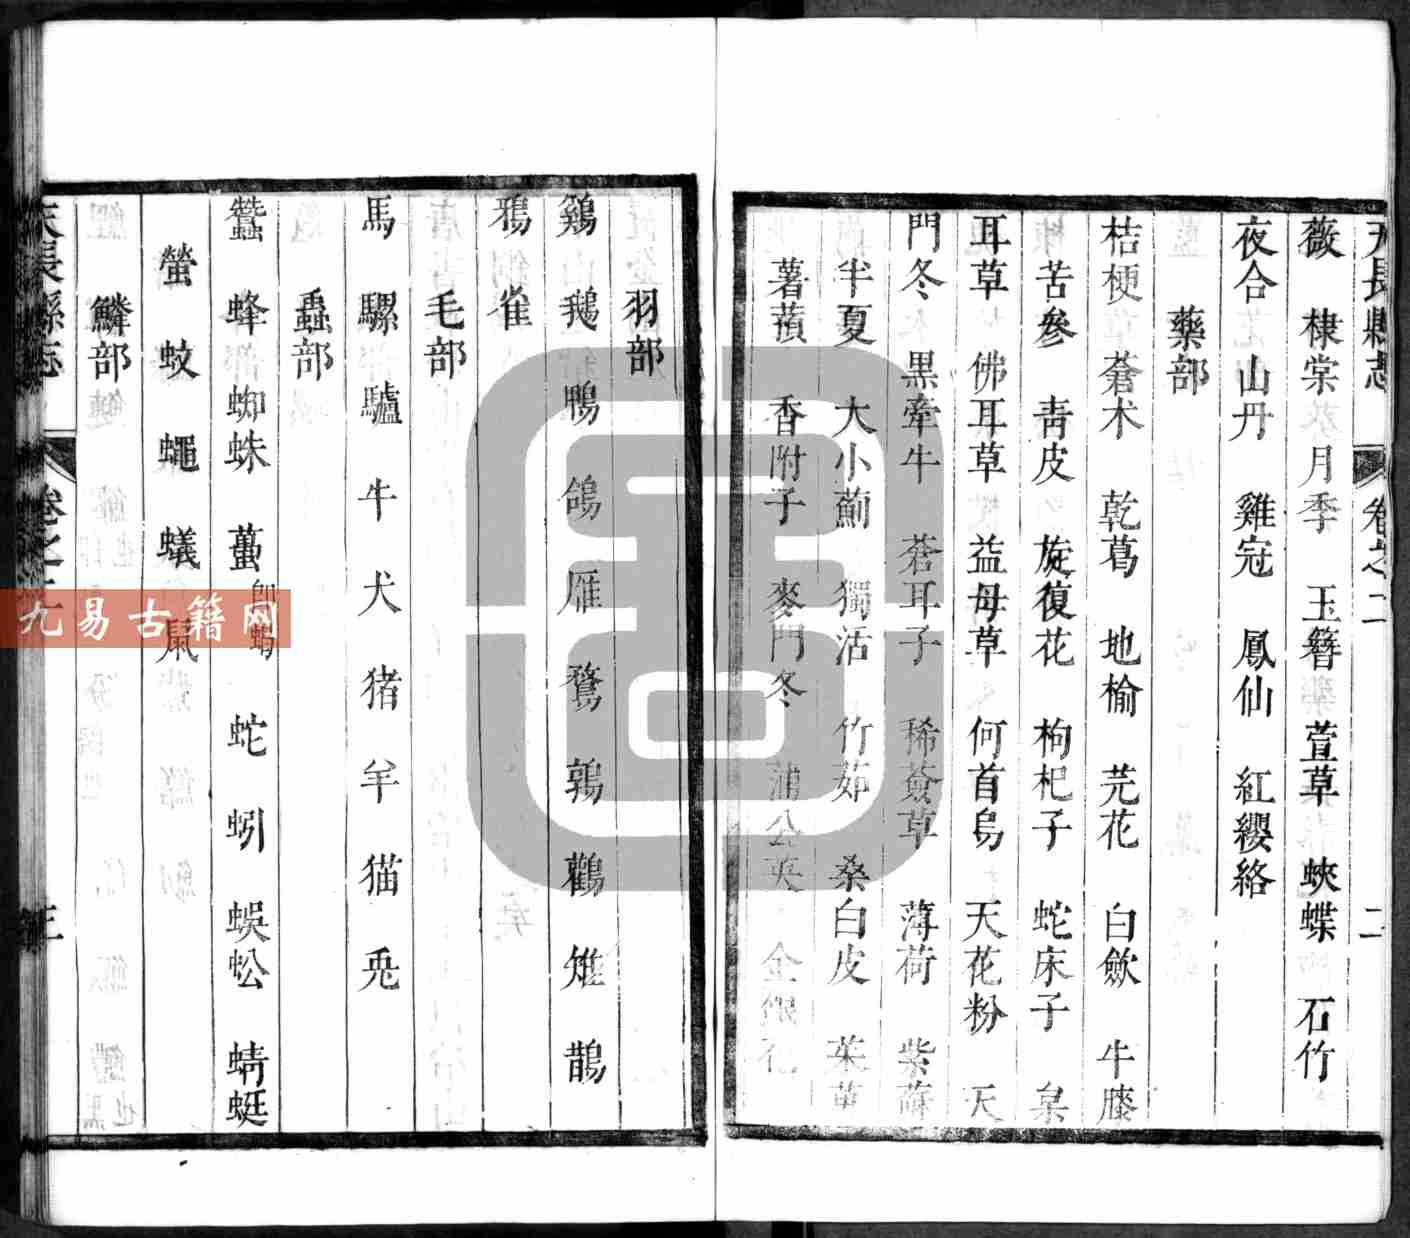 天長縣志 卷之二 二
薇 棣棠 月季 玉簪 萱草 蛺蝶 石竹
夜合 山丹 雞冠 鳳仙 紅纓絡
藥部
桔梗 蒼术 乾葛 地榆 芫花 白歛 牛膝
苦參 青皮 旋復花 枸杞子 蛇床子
耳草 佛耳草 益母草 何首烏 天花粉 天
門冬 黑牽牛 蒼耳子 稀薟草 薄荷 紫蘇
半夏 大小薊 獨活 竹茹 桑白皮 茱萸
薯蕷 香附子 麥門冬 蒲公英 金銀花
羽部
鷄 鵝 鴨 鴿 雁 鶩 鶉 鸛 雉 鵲
鴉 雀
毛部
馬 騾 驢 牛 犬 猪 羊 猫 兎
蟲部
蠶 蜂 蜘蛛 蠆 即蝎 蛇 蚓 蜈蚣 蜻蜓
螢 蚊 蠅 蟻 鼠
鱗部
天長縣志 卷之二 三
九易古籍网